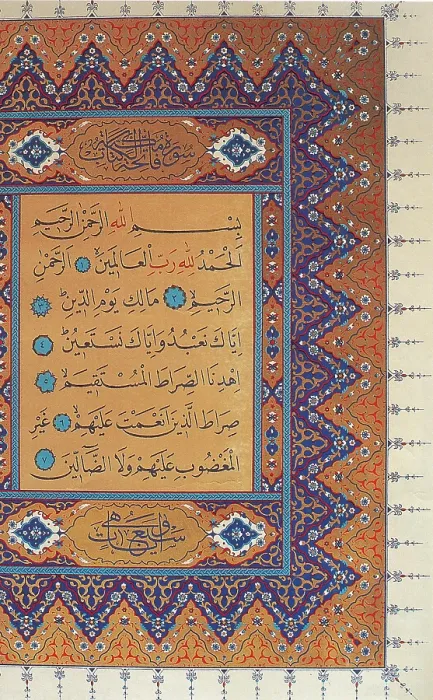 سورة فاتحة الكتاب مكية
بِسْمِ اللهِ الرَّحْمٰنِ الرَّحِيمِ
اَلْحَمْدُ لِلّٰهِ رَبِّ الْعَالَمِينَ ١ اَلرَّحْمٰنِ
الرَّحِيمِ ٢ مَالِكِ يَوْمِ الدِّينِ ٣
اِيَّاكَ نَعْبُدُ وَاِيَّاكَ نَسْتَعِينُ ٤
اِهْدِنَا الصِّرَاطَ الْمُسْتَقِيمَ ٥
صِرَاطَ الَّذِينَ اَنْعَمْتَ عَلَيْهِمْ ٦ غَيْرِ
الْمَغْضُوبِ عَلَيْهِمْ وَلَا الضَّالِّينَ ٧
وهي سبع آيات